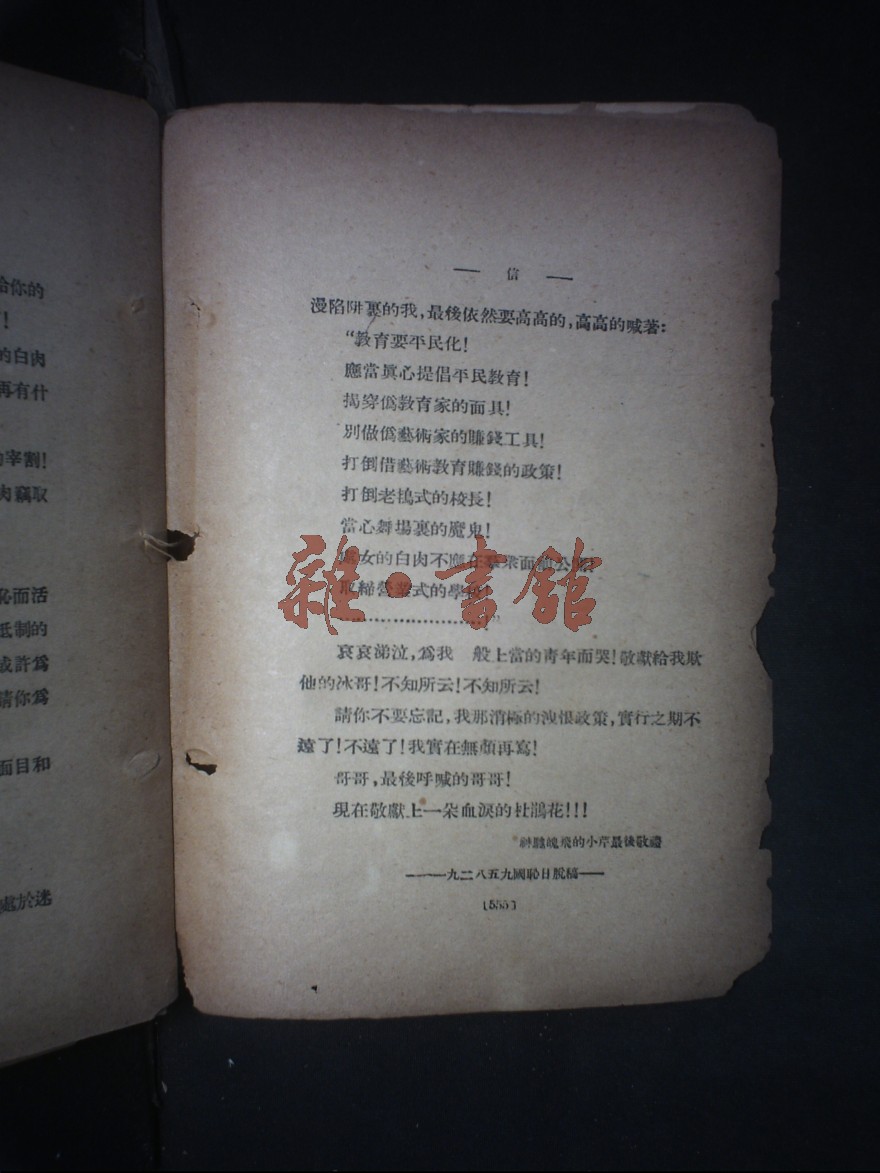 給你的
!
的白肉
再有什
的宰割!
肉竊取
恥而活
抵制的
或許爲
請你爲
面目和
處於迷
— 信 —
漫陷阱裏的我,最後依然要高高的,高高的喊著:
“教育要平民化!
應當眞心提倡平民教育!
揭穿僞教育家的面具!
別做僞藝術家的賺錢工具!
打倒借藝術教育賺錢的政策!
打倒老鴇式的校長!
當心舞場裏的魔鬼!
處女的白肉不應在羣衆面前公開!
取締營業式的學校!
…………………!”
哀哀涕泣,爲我 般上當的靑年而哭!敬獻給我欺
他的冰哥!不知所云!不知所云!
請你不要忘記,我那消極的洩恨政策,實行之期不
遠了!不遠了!我實在無顏再寫!
哥哥,最後呼喊的哥哥!
現在敬獻上一朵血淚的杜鵑花!!!
神魂飛的小芹最後敬禮
——一九二八五九國恥日脫稿——
(555)
雜·書館